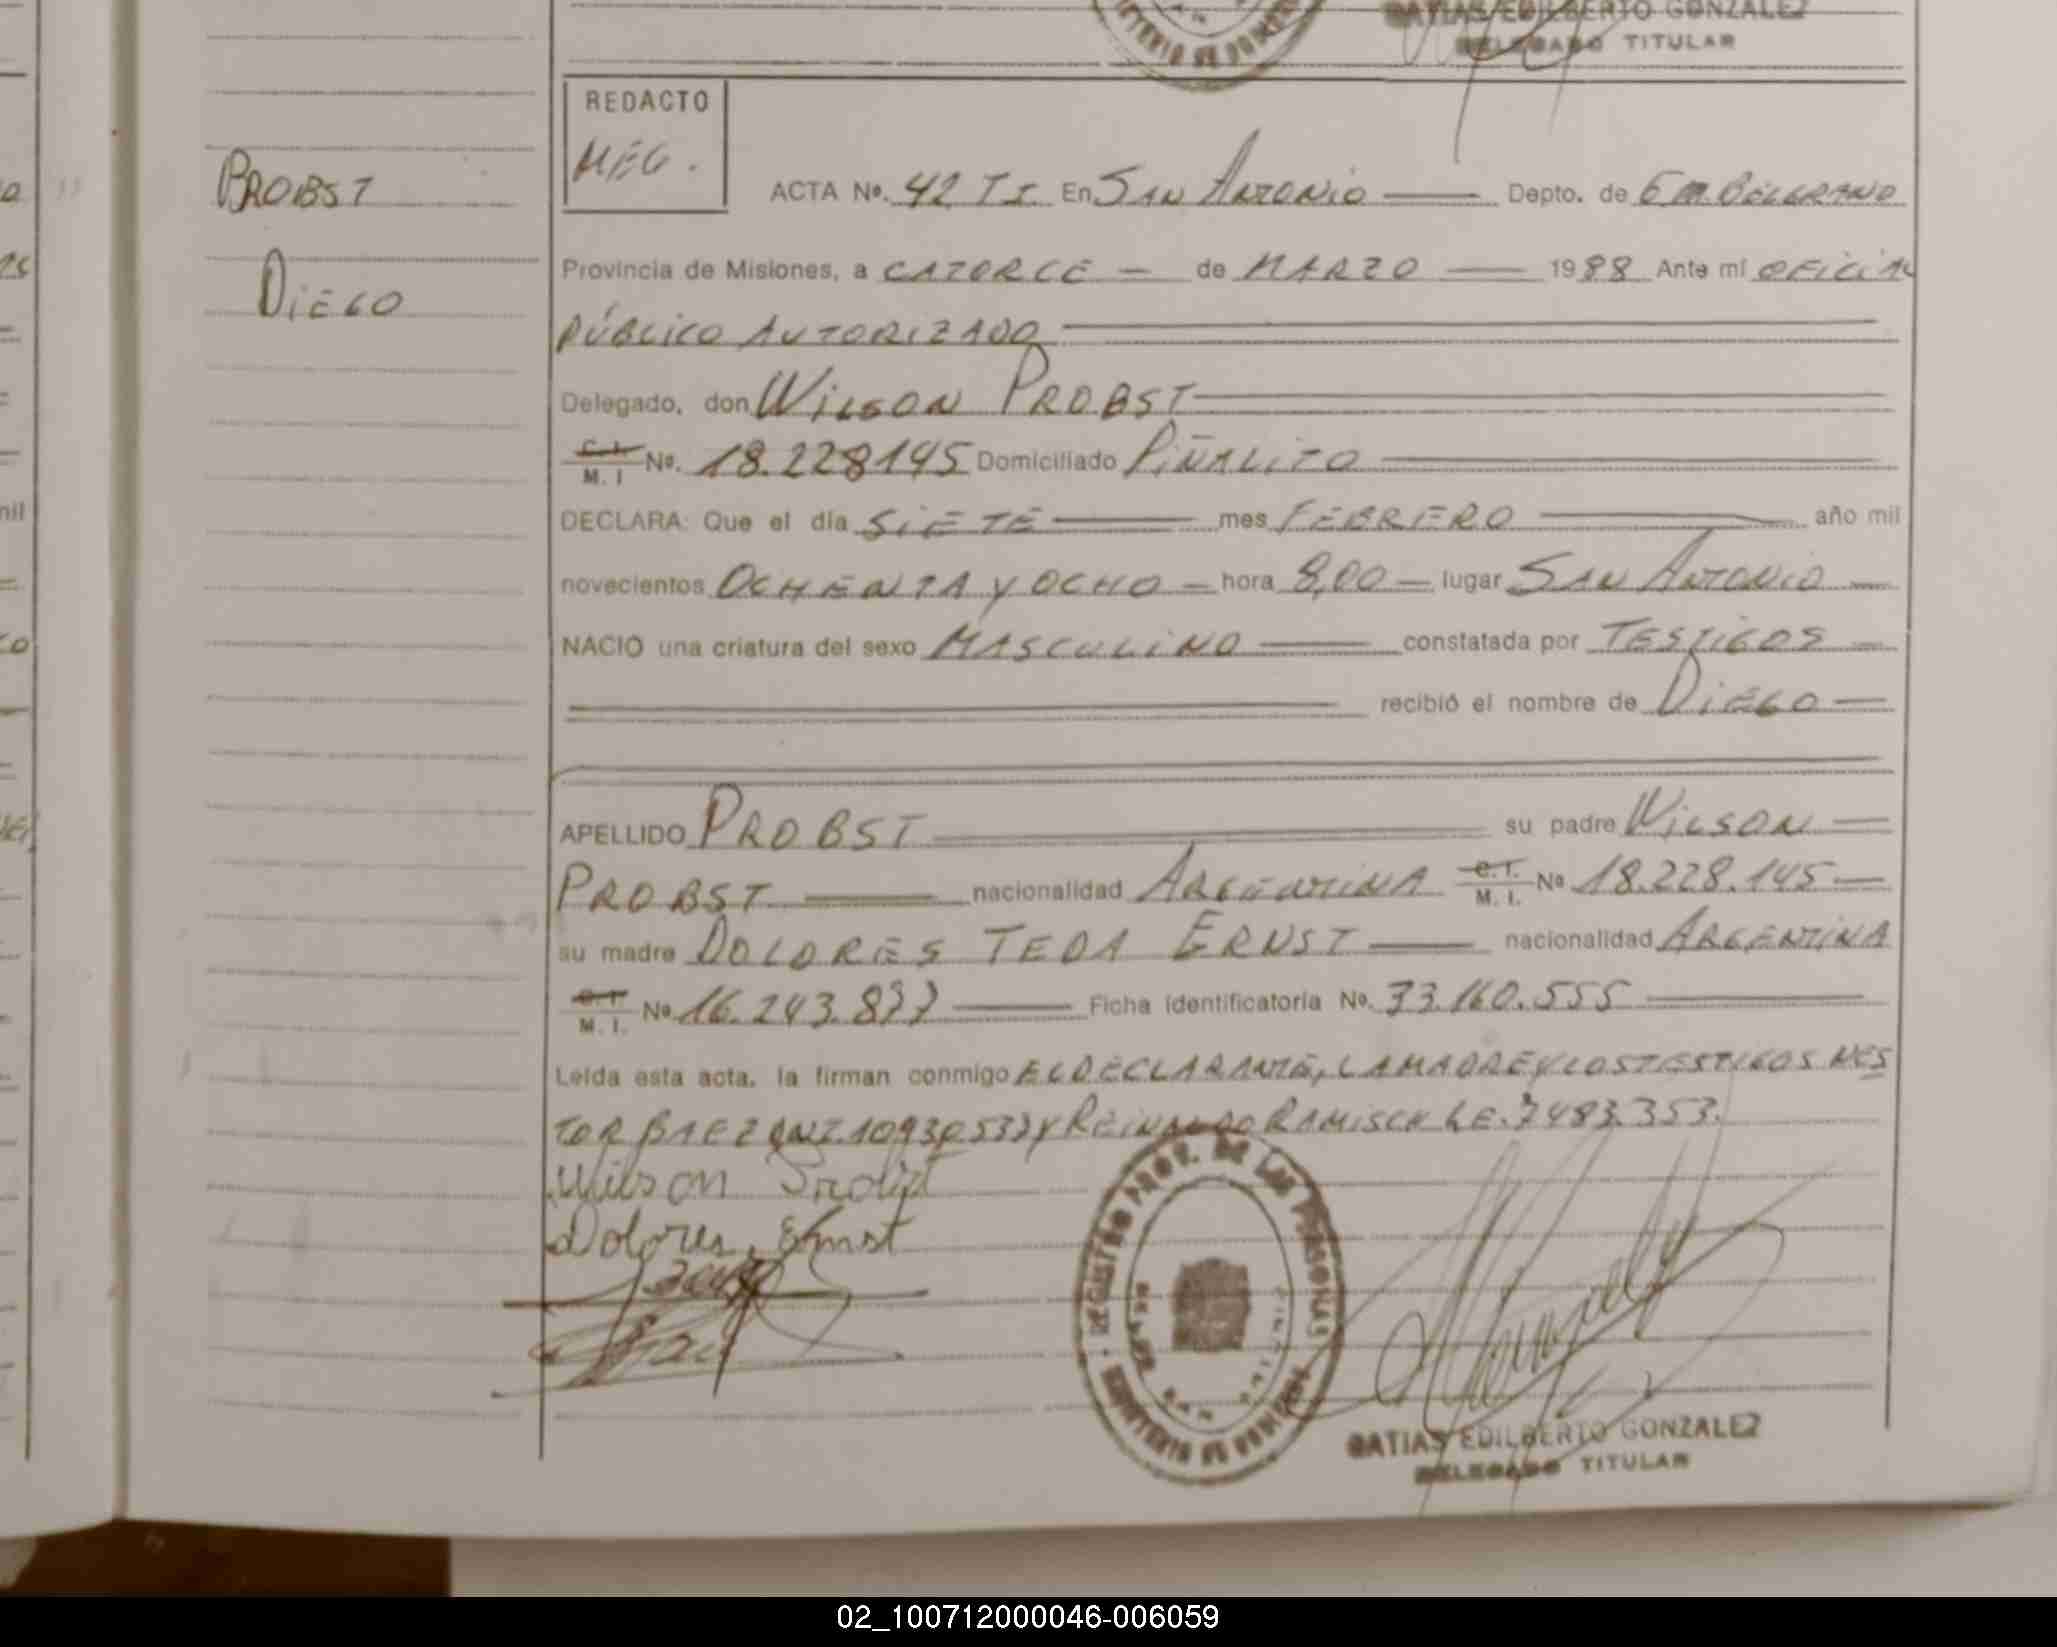 MATIAS EDILBERTO GONZALEZ
DELEGADO TITULAR
REDACTO
MEG.
PROBST
DIEGO
ACTA Nº. 42 TI. En SAN ANTONIO Depto. de GM. BELGRANO
Provincia de Misiones, a CATORCE de MARZO 1988 Ante mí OFICIAL
PÚBLICO AUTORIZADO
Delegado, don WILSON PROBST
C. I. M. I Nº. 18.228145 Domiciliado PIÑALITO
DECLARA: Que el día SIETE mes FEBRERO año mil
novecientos OCHENTA Y OCHO hora 8,00 lugar SAN ANTONIO
NACIO una criatura del sexo MASCULINO constatada por TESTIGOS
recibió el nombre de DIEGO
APELLIDO PROBST su padre WILSON
PROBST nacionalidad ARGENTINA C.I. M. I. Nº 18.228.145
su madre DOLORES TEDA ERNST nacionalidad ARGENTINA
C.I. M. I. Nº 16.243.877 Ficha identificatoria Nº. 33.160.555
Leída esta acta, la firman conmigo EL DECLARANTE, LA MADRE Y LOS TESTIGOS NES
TOR BAEZ Y REINALDO RAMISCH L.E. 7483.353.
Wilson Probst
Dolores Ernst
REGISTRO PROV. DE LAS PERSONAS
MINISTERIO DE GOBIERNO
MATIAS EDILBERTO GONZALEZ
DELEGADO TITULAR
02_100712000046-006059